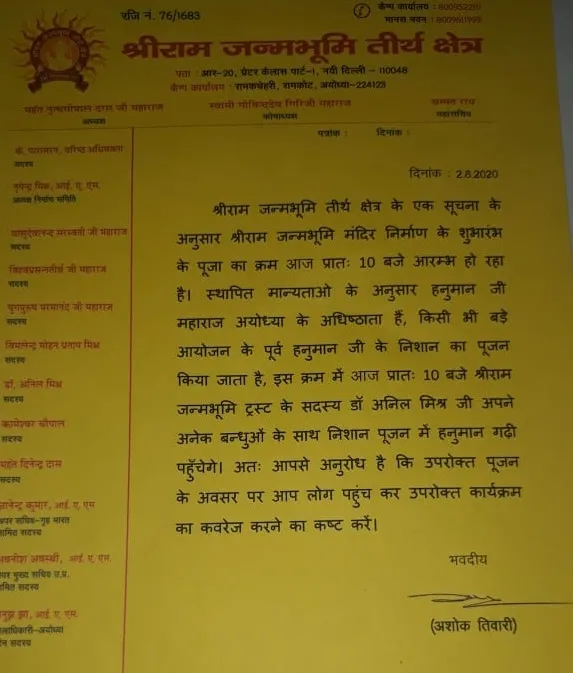 रजि नं. 76/1683
कैम्प कार्यालय :
मानस भवन :
श्रीराम जन्मभूमि तीर्थ क्षेत्र
पता : आर-20, ग्रेटर कैलास पार्ट-1, नयी दिल्ली - 110048
कैम्प कार्यालय : रामकचेहरी, रामकोट, अयोध्या-224123
महंत नृत्यगोपाल दास जी महाराज
अध्यक्ष
स्वामी गोविन्ददेव गिरिजी महाराज
कोषाध्यक्ष
चम्पत राय
महासचिव
पत्रांक : दिनांक :
के. पारासरन, वरिष्ठ अधिवक्ता
सदस्य
नृपेन्द्र मिश्र, आई. ए. एस.
अध्यक्ष निर्माण समिति
वासुदेवानन्द सरस्वती जी महाराज
सदस्य
विश्वप्रसन्नतीर्थ जी महाराज
सदस्य
युगपुरुष परमानंद जी महाराज
सदस्य
विमलेन्द्र मोहन प्रताप मिश्र
सदस्य
डॉ. अनिल मिश्र
सदस्य
कामेश्वर चौपाल
सदस्य
महंत दिनेन्द्र दास
सदस्य
ज्ञानेन्द्र कुमार, आई. ए. एस
अपर सचिव-गृह भारत
नामित सदस्य
अवनीश अवस्थी, आई. ए. एस.
अपर मुख्य सचिव उ.प्र.
नामित सदस्य
अनुज झा, आई. ए. एस.
जिलाधिकारी-अयोध्या
सदस्य
दिनांक : 2.8.2020
श्रीराम जन्मभूमि तीर्थ क्षेत्र के एक सूचना के
अनुसार श्रीराम जन्मभूमि मंदिर निर्माण के शुभारंभ
के पूजा का क्रम आज प्रातः 10 बजे आरम्भ हो रहा
है। स्थापित मान्यताओ के अनुसार हनुमान जी
महाराज अयोध्या के अधिष्ठाता हैं, किसी भी बड़े
आयोजन के पूर्व हनुमान जी के निशान का पूजन
किया जाता है, इस क्रम में आज प्रातः 10 बजे श्रीराम
जन्मभूमि ट्रस्ट के सदस्य डॉ अनिल मिश्र जी अपने
अनेक बन्धुओं के साथ निशान पूजन में हनुमान गढ़ी
पहुँचेगे। अतः आपसे अनुरोध है कि उपरोक्त पूजन
के अवसर पर आप लोग पहुंच कर उपरोक्त कार्यक्रम
का कवरेज करने का कष्ट करें।
भवदीय
(अशोक तिवारी)